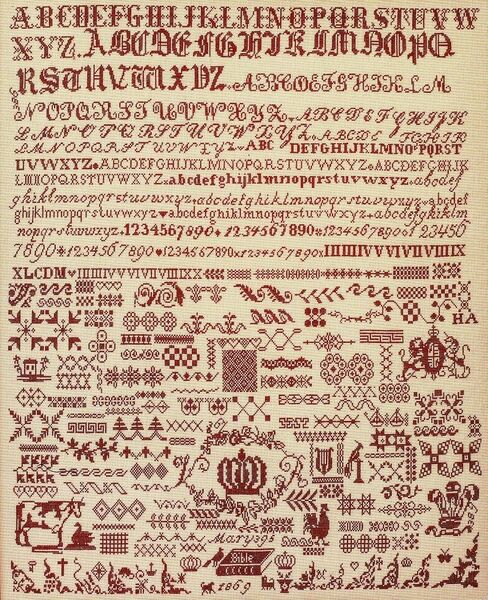 ABCDEFGHIJKLMNOPQRSTUVW
XYZ. ABCDEFGHIKLMNOPQ
RSTUVWXYZ. ABCDEFGHIKLM
NOPQRSTUVWXYZ. ABCDEFGHIK
LMNOPQRSTUVWXYZ. ABCDEFGHIJK
LMNOPQRSTUVWXYZ. ABC DEFGHIJKLMNOPQRST
UVWXYZ. ABCDEFGHIJKLMNOPQRSTUVWXYZ. ABCDEFGHIJK
LMNOPQRSTUVWXYZ. abcdefghijklmnopqrstuvwxyz. abcdef
ghijklmnopqrstuvwxyz. abcdefghijklmnopqrstuvwxyz. abcdef
ghijklmnopqrstuvwxyz abcdefghijklmnopqrstuvwxyz. abcdefghijklm
nopqrstuvwxyz. 1234567890 1234567890 123456
7890 1234567890 1234567890 1234567890 IIIIIIIVVVIVIIVIIIIX
XLCDM IIIIIIIVVVIVIIVIIIIXX
HA
Mary 395
Bible
1869